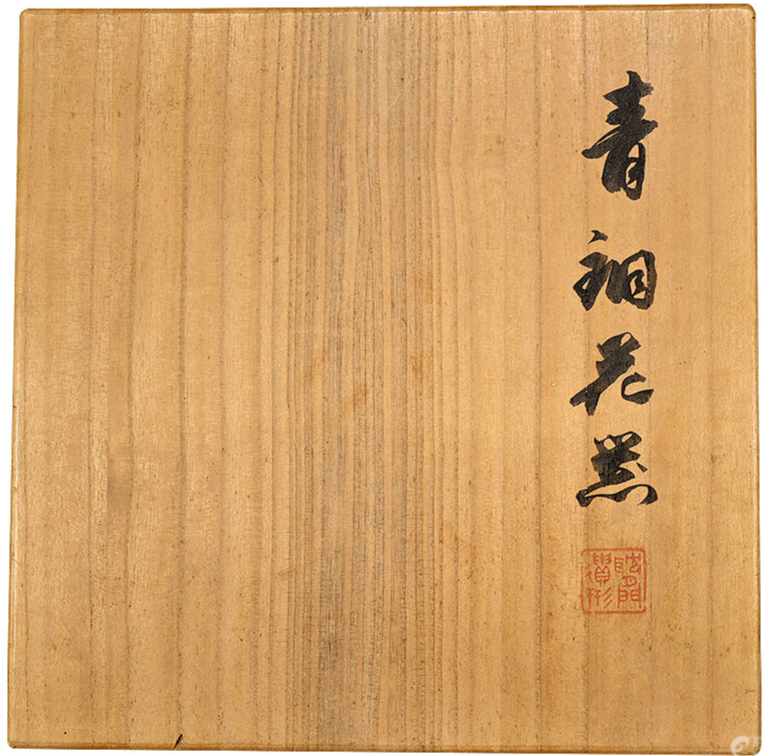 青銅花器